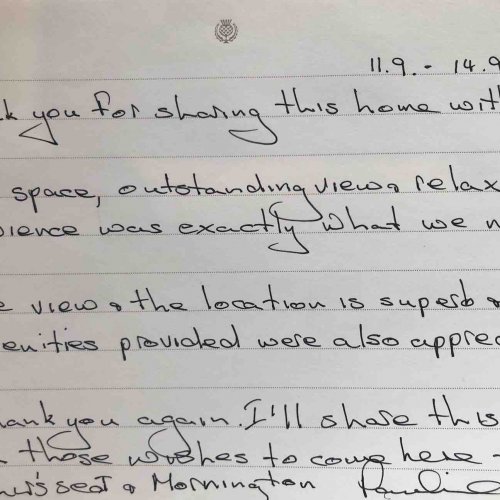 11.9. - 14.9
k you for sharing this home with
space, outstanding view & relax
bience was exactly what we n
e view & the location is superb &
enities provided were also apprec
hank you again. I'll share this
those wishes to come here -
hur's seat & Mornington